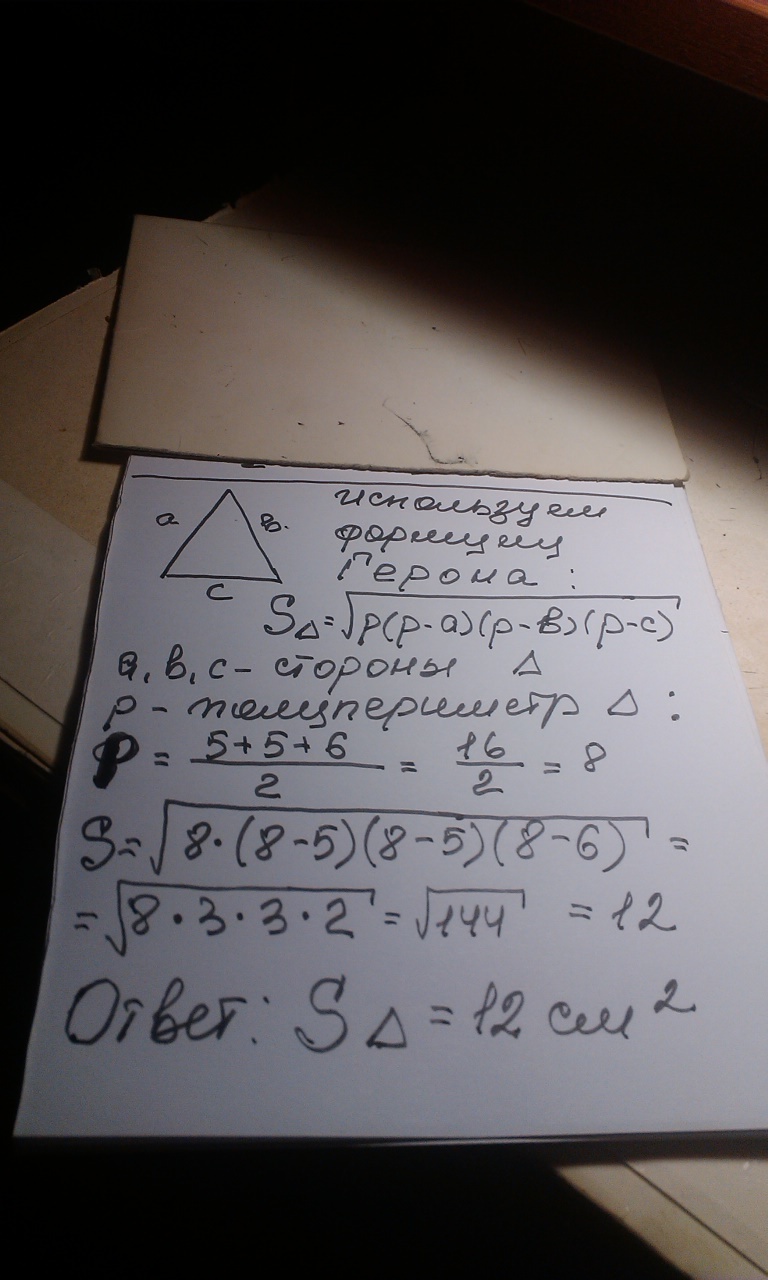 a
в.
c
используем
формулу
Герона:
S△=√p(p-a)(p-в)(p-c)
a, в, c - стороны △
p - полупериметр △:
p = 5+5+6/2 = 16/2 = 8
S=√8·(8-5)(8-5)(8-6) =
=√8·3·3·2 = √144 = 12
Ответ: S△ = 12 см²